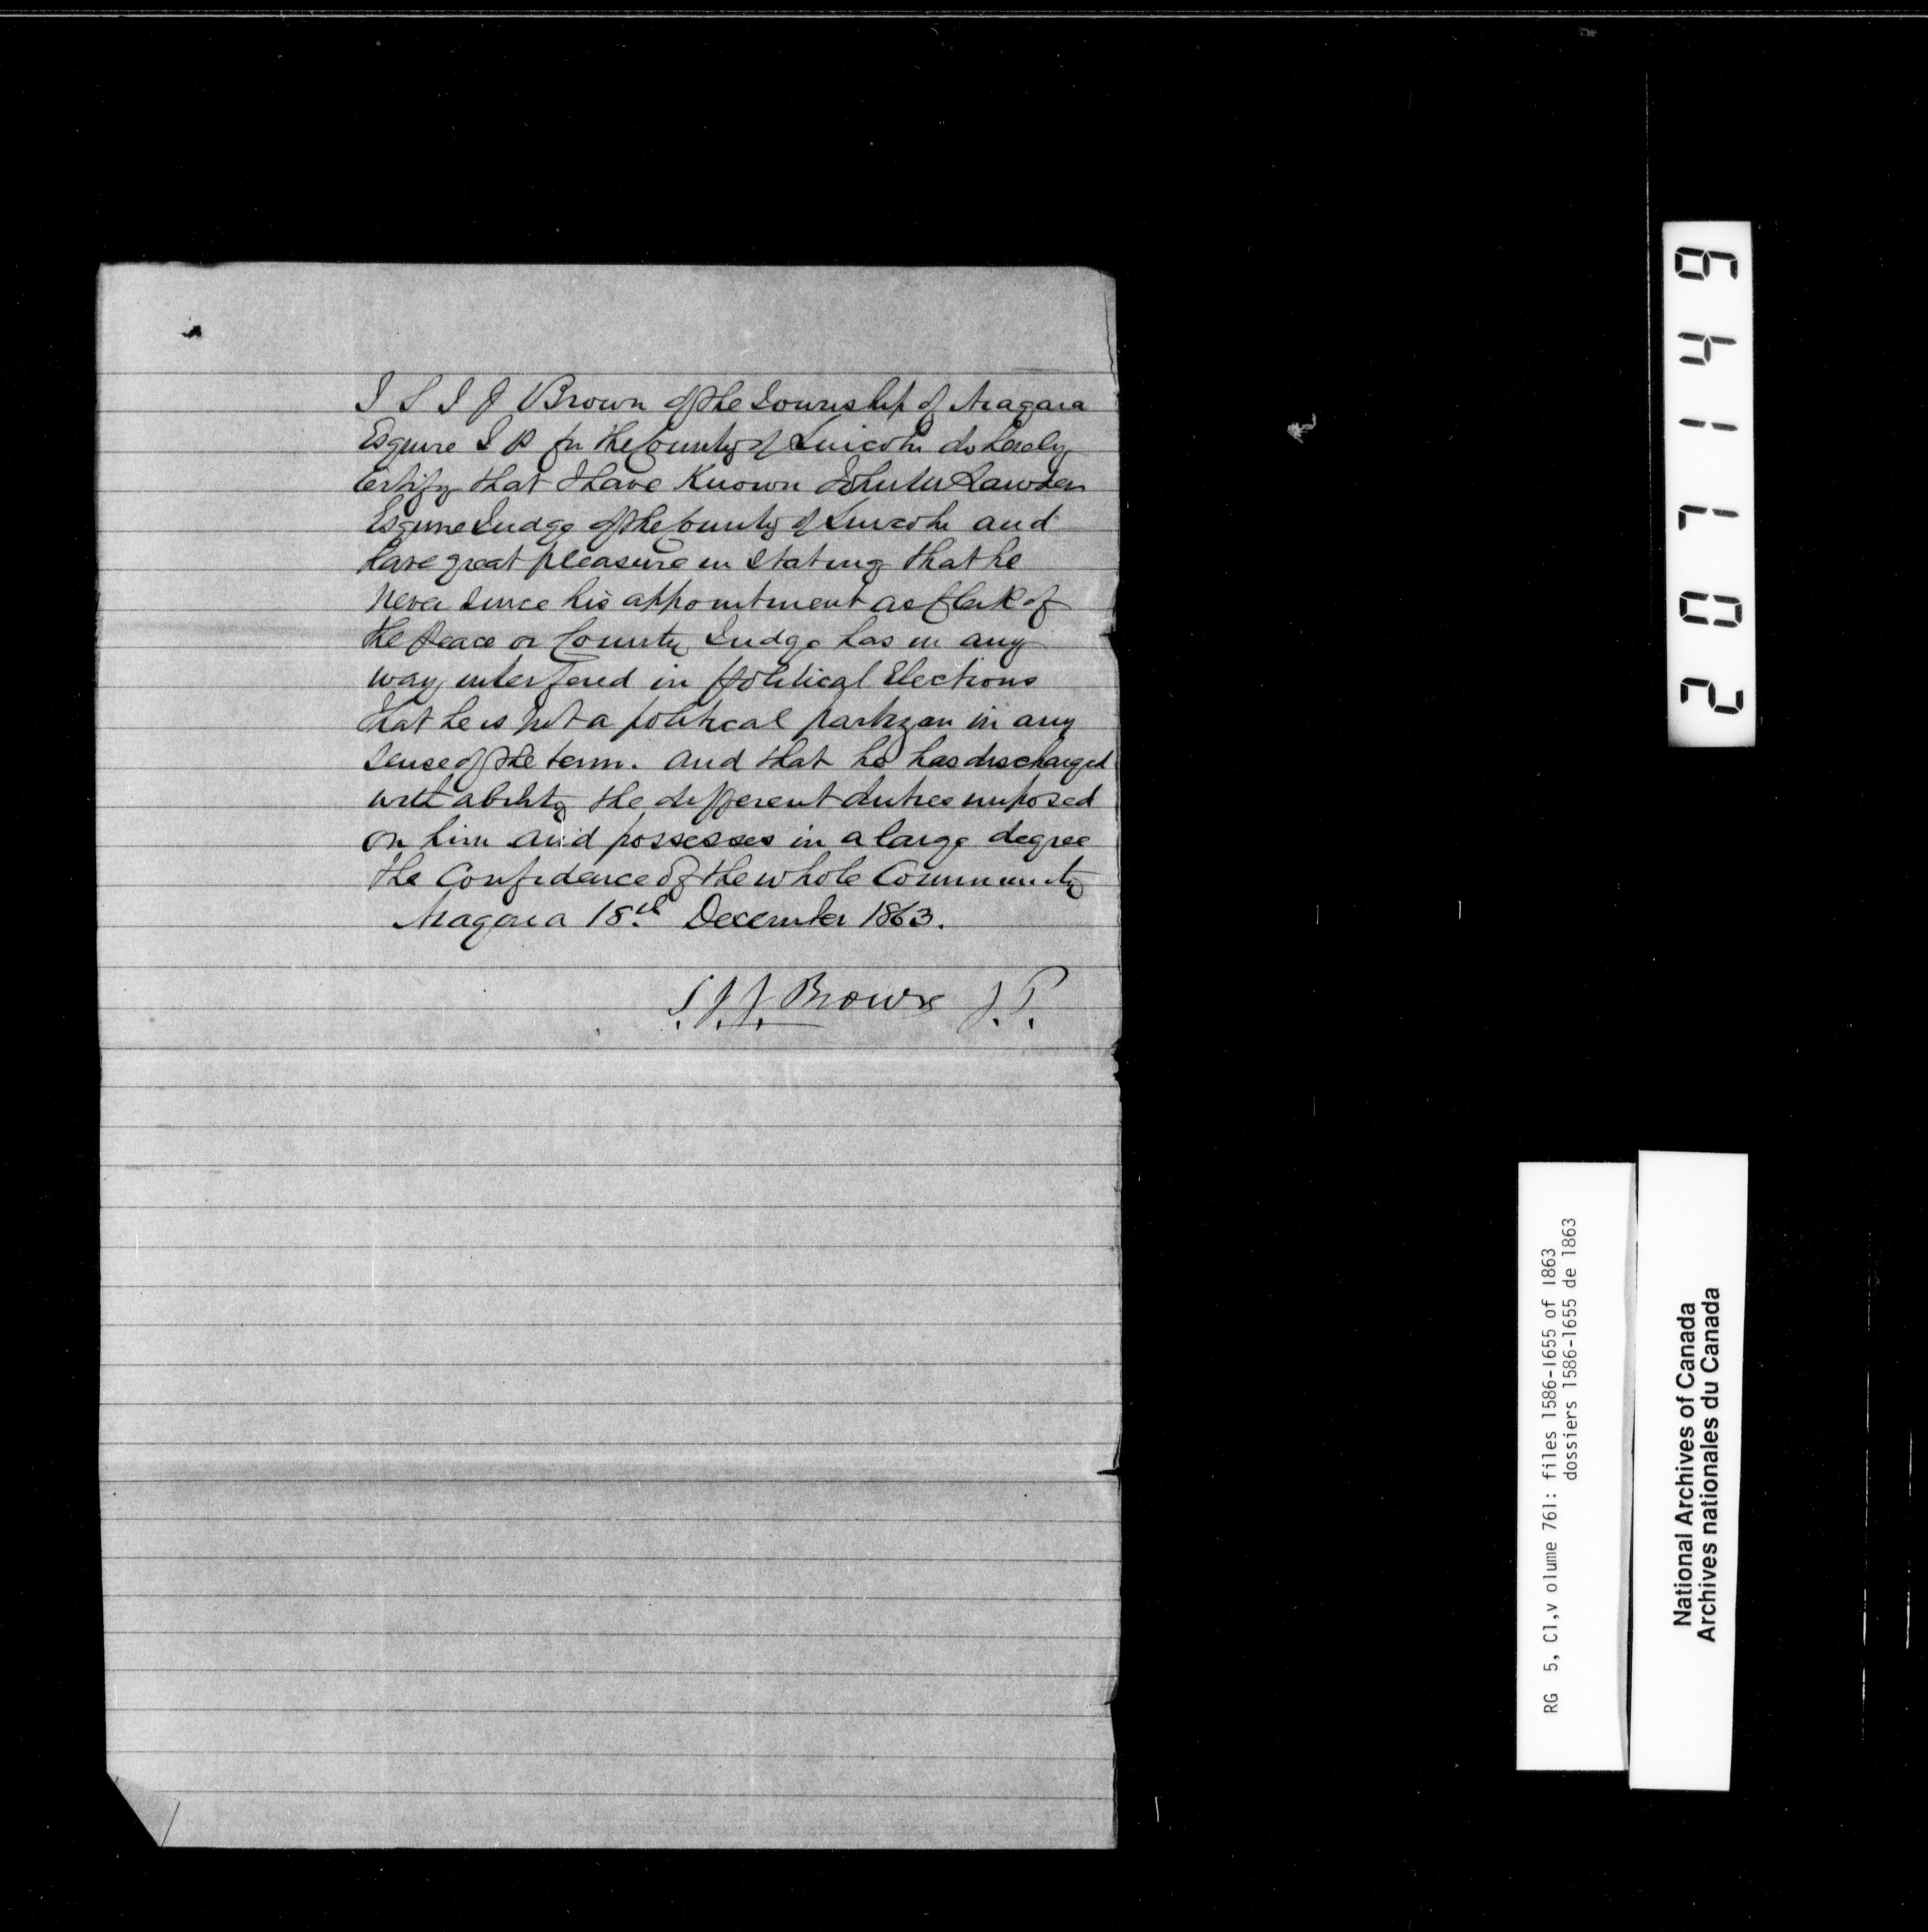 I S I J Brown of the Township of Niagara
Esquire J P for the County of Lincoln do hereby
Certify that I have Known John M Lawder
Esquire Judge of the County of Lincoln and
have great pleasure in stating that he
Never since his appointment as Clerk of
the Peace or County Judge has in any
way interfered in political Elections
that he is not a political partizan in any
sense of the term. and that he has discharged
with ability the different duties imposed
on him and possesses in a large degree
the Confidence of the whole Community
Niagara 18th December 1863.
S.J.J. Brown J.P.
207149
RG 5, C1,v olume 761: files 1586-1655 of 1863
dossiers 1586-1655 de 1863
National Archives of Canada
Archives nationales du Canada